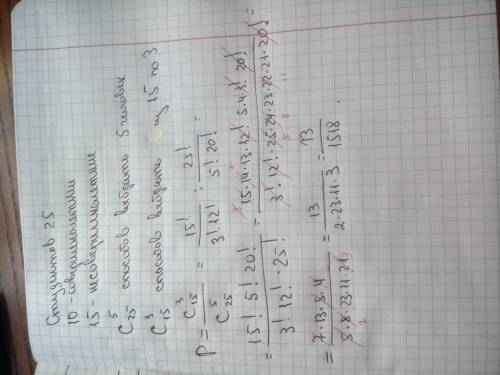 Студентов 25
10 - совершеннолетних
15 - несовершеннолетние
C₂₅⁵ способов выбрать 5 человек
C₁₅³ способов выбрать из 15 по 3
P = C₁₅³ / C₂₅⁵ = 15! / (3! 12!) : 25! / (5! 20!) =
= (15! 5! 20!) / (3! 12! · 25!) = (15·14·13·12! · 5·4·3! · 20!) / (3! · 12! · 25·24·23·22·21·20!) =
= (7·13·5·4) / (5·8·23·11·21) = 13 / (2·23·11·3) = 13 / 1518 .